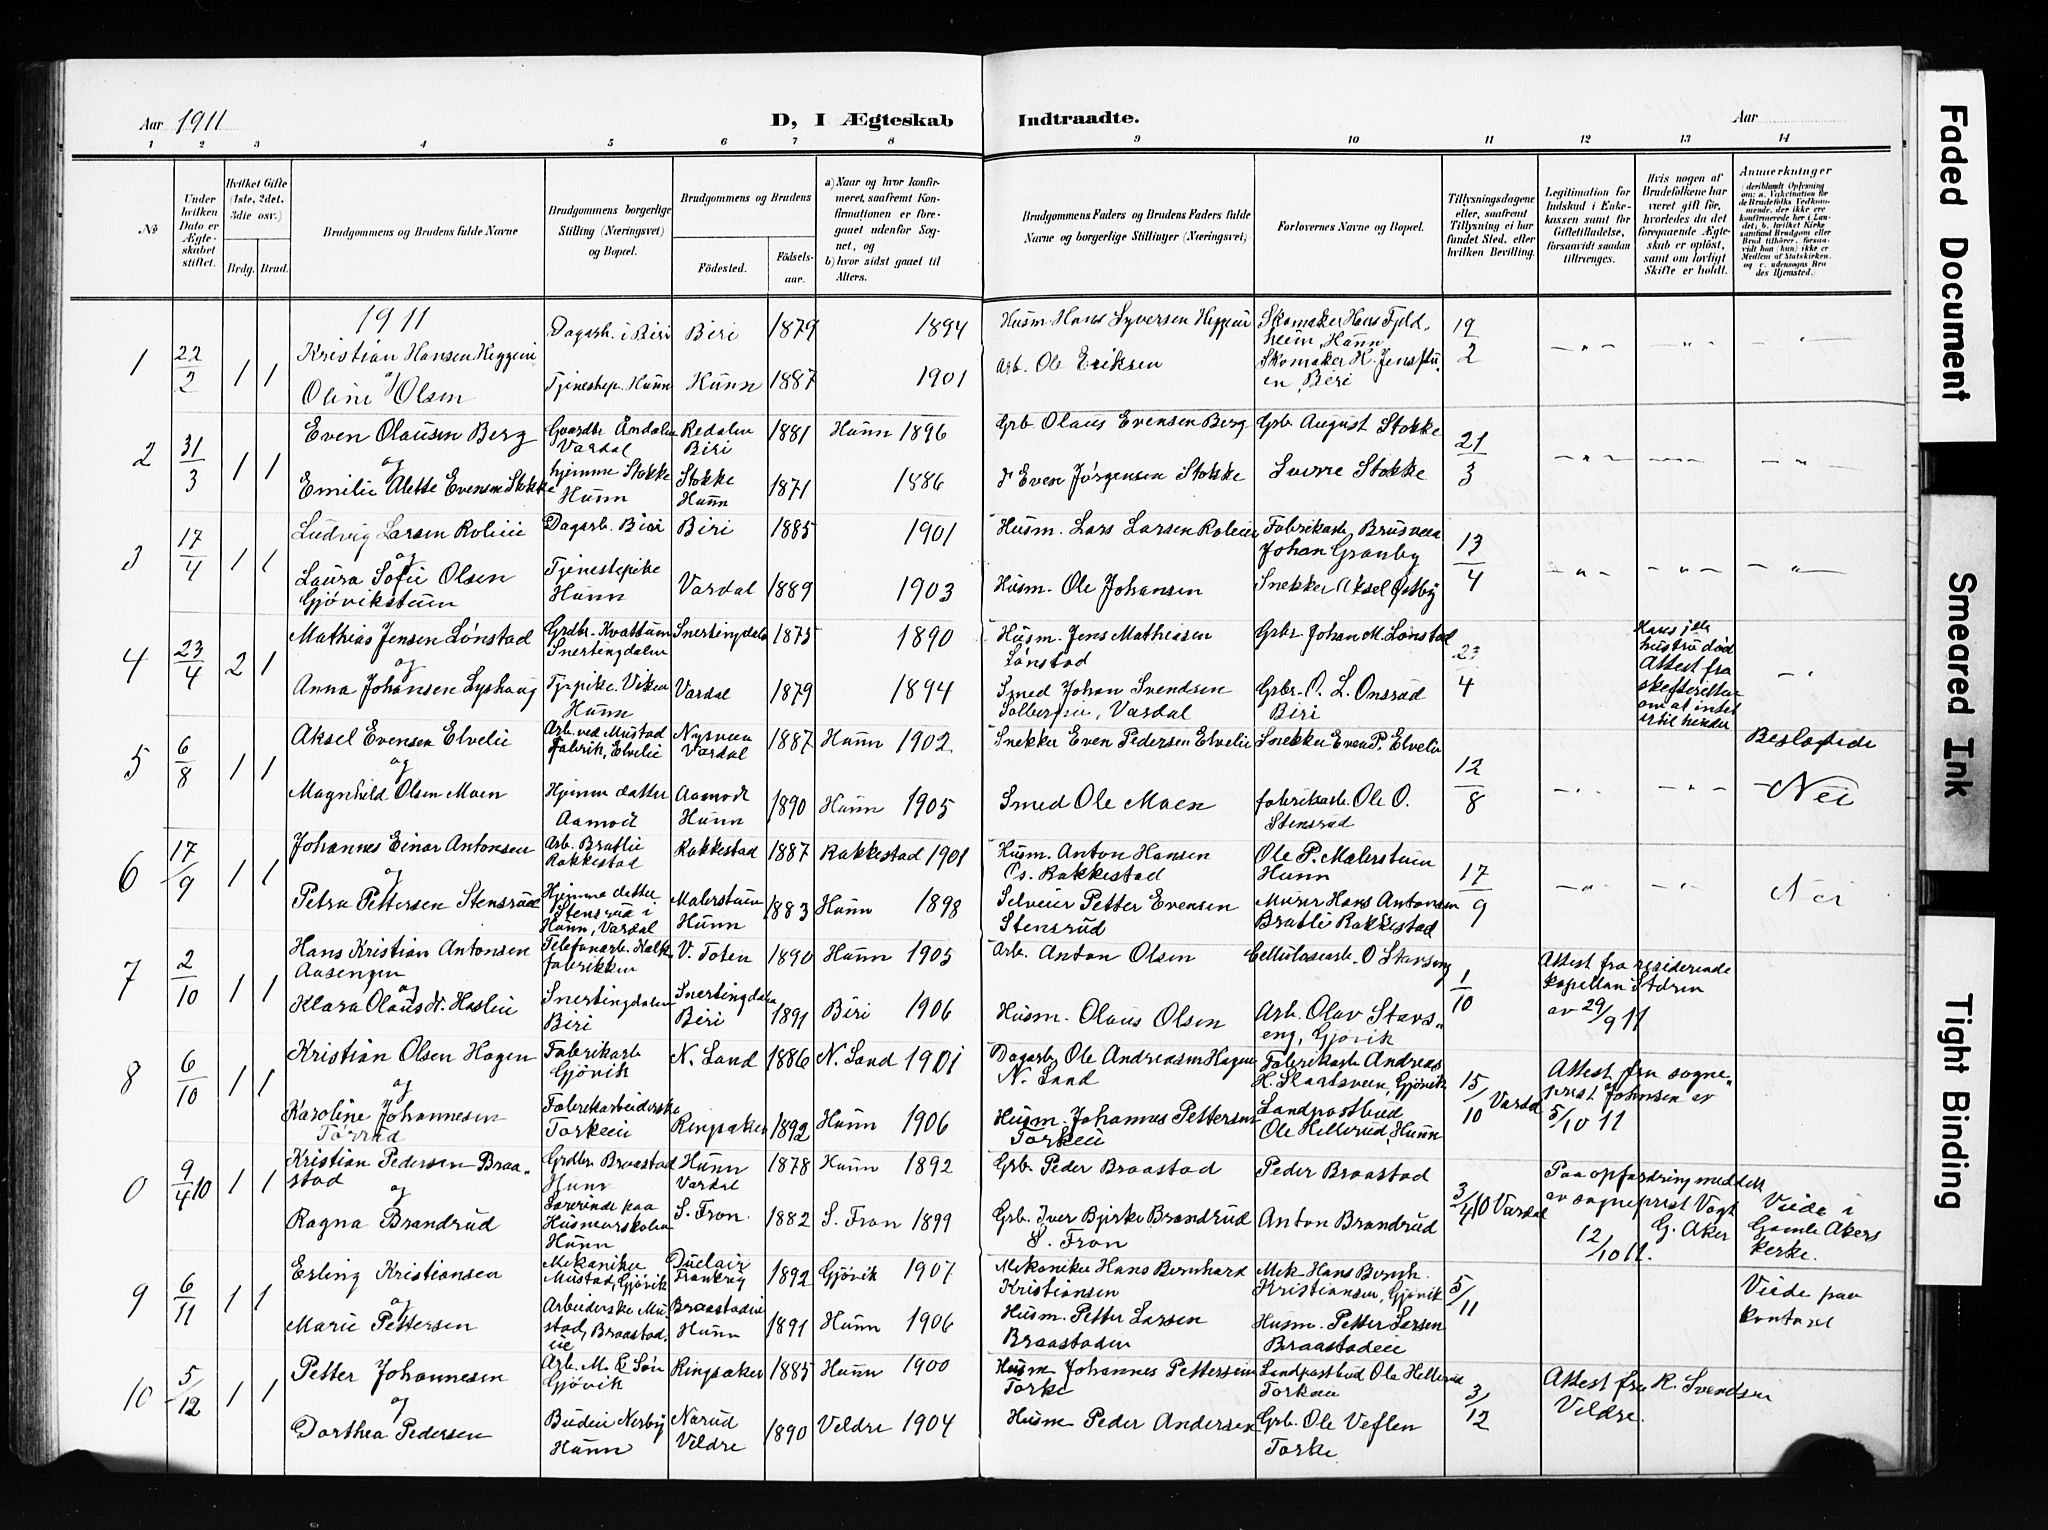 Aar 1911
D, I Ægteskab Indtraadte.
Aar
1 2 3 4 5 6 7 8 9 10 11 12 13 14
No
Under hvilken Dato er Ægteskabet stiftet.
Hvilket Gifte (1ste, 2det, 3die osv.)
Brdg. Brud.
Brudgommens og Brudens fulde Navne
Brudgommens borgerlige Stilling (Næringsvei) og Bopæl.
Brudgommens og Brudens
Födested.
Födselsaar.
a) Naar og hvor konfirmeret, saafremt Konfirmationen er foregaaet udenfor Sognet, og
b) hvor sidst gaaet til Alters.
Brudgommens Faders og Brudens Faders fulde Navne og borgerlige Stillinger (Næringsvei)
Forlovernes Navne og Bopæl.
Tillysningsdagene eller, saafremt Tillysning ei har fundet Sted, efter hvilken Bevilling.
Legitimation for Indskud i Enkekassen samt for Giftetilladelse, forsaavidt saadan tiltrænges.
Hvis nogen af Brudefolkene har været gift før, hvorledes da det foregaaende Ægteskab er opløst, samt om lovligt Skifte er holdt.
Anmerkninger
1911
1 22/2 1 1
Kristian Hansen Heggeni
og
Oline Olsen
Dagarb. i Biri Biri 1879 1894
Tjenestep. Hunn Hunn 1887 1901
Husm Hans Syversen Heggeni
Arb. Ole Eriksen
Skomaker Hans Fjeld,
heim, Hunn
Skomaker H. Jensstu,
en, Biri
19/2
2 31/3 1 1
Even Olausen Berg
og
Emilie Alette Evensen Stokke
Gvardbr Åndalen
Vardal
hjemme Stokke
Hunn
Redalen
Biri
Stokke
Hunn
1881 Hunn 1896
1871 1886
Grb. Olaus Evensen Berg
Even Jörgensen Stokke
Grb August Stokke
Sverre Stokke
21/3
3 17/4 1 1
Ludvig Larsen Roliei
og
Laura Sofie Olsen
Gjövikstuen
Dagarb. Biri
Tjenestepike
Hunn
Biri 1885 1901
Vardal 1889 1903
Husm. Lars Larsen Roliei
Husm. Ole Johansen
Fabrikarb Brusveen
Johan Granby
Snekker Aksel Östby
13/4
4 23/4 2 1
Mathias Jensen Lönstad
og
Anna Johansen Lyshaug
Grdbr. Kvattum
Snertingdalen
Tj.pike. Viken
Hunn
Snertingdalen 1875 1890
Vardal 1879 1894
Husm. Jens Mathiesen
Lönstad
Smed Johan Svendsen
Solbergei, Vardal
Grbr Johan M. Lönstad
Grbr. O. L. Onsrud
Biri
23/4
hustru död
Attest fra
skifteretten
om at intet
er til hinder
5 6/8 1 1
Aksel Evensen Elvelie
og
Magnhild Olsen Moen
Arb. ved Mustad
Fabrik, Elvelie
Hjemme datter
Aamodt
Nysveen
Vardal
Aamodt
Hunn
1887 Hunn 1902
1890 Hunn 1905
Snekker Even Pedersen Elvelie
Smed Ole Moen
Snekker Even P. Elvelie
fabrikarb. Ole O.
Stensrud
12/8
Beslægtede
Nei
6 17/9 1 1
Johannes Einar Antonsen
og
Petra Pettersen Stensrud
Arb. Bratlie
Rakkestad
Hjemme datter
Stensrud i
Hunn, Vardal
Rakkestad
Malerstuen
Hunn
1887 Rakkestad 1901
1883 Hunn 1898
Husm. Anton Hansen
Os. Rakkestad
Selveier Petter Evensen
Stensrud
Ole P. Malerstuen
Hunn
Murer Hans Antonsen
Bratlie Rakkestad
17/9
Nei
7 2/10 1 1
Hans Kristian Antonsen
Aasengen
og
Klara Olausdt. Haslie
Telefonarb. Kalk
fabrikken
Snertingdalen
Biri
V. Toten
Snertingdalen
Biri
1890 Hunn 1905
1891 Biri 1906
Arb. Anton Olsen
Husm. Olaus Olsen
Cellulosearb. O Stavseng
Arb. Olav Stavs„
eng, Gjövik
1/10
Attest fra residerende
kapellan Stören
av 29/9 11
8 6/10 1 1
Kristian Olsen Hagen
og
Karoline Johannesen
Törrud
Fabrikarb
Gjövik
Fabrikarbeiderske
Torkeei
N. Land
Ringsaker
1886 N. Land 1901
1892 Hunn 1906
Dagarb. Ole Andreasen Hagen
N. Land
Husm. Johannes Pettersen
Torkeei
Fabrikarb Andreas
H. Slaatsveen, Gjövik
Landpostbud
Ole Hellerud, Hunn
15/10 Vardal
Attest fra sogne„
prest Johnsen av
5/10 11
0 9/4 10 1 1
Kristian Pedersen Braa„
stad
og
Ragna Brandrud
Grdbr. Braastad
Hunn
Lærerinde paa
Husmorskolen
Hunn
Hunn
Vardal
S. Fron.
1878 Hunn 1892
1882 S. Fron 1899
Grb. Peder Braastad
Grb. Iver Bjerke Brandrud
S. Fron
Peder Braastad
Anton Brandrud
3/4 10 Vardal
Paa opfordring meddelt
av sogneprest Vogt
G. Aker
12/10 11.
Viede i
Gamle Akers
kerke.
9 6/11 1 1
Erling Kristiansen
og
Marie Pettersen
Mekaniker
Mustad, Gjövik
Arbeiderske Mu„
stad, Braastad,
eie
Duclair
Frankrig
Braastadeie
Hunn
1892 Gjövik 1907
1891 Hunn 1906
Mekaniker Hans Bernhard
Kristiansen
Husm. Petter Larsen
Braastadeie
Mek. Hans Bernh.
Kristiansen, Gjövik
Husm. Petter Larsen
Braastadeie
5/11
Viede paa
kontoret
10 5/12 1 1
Petter Johannesen
og
Dorthea Pedersen
Arb. M. & Sön
Gjövik
Budeie Nerby
Hunn
Ringsaker
Narud
Veldre
1885 Hunn 1900
1890 Veldre 1904
Husm Johannes Pettersen
Torke
Husm Peder Andersen
Landpostbud Ole Hellerud
Torkeei
Grb. Ole Veflen
Torke
3/12
Attest fra K. Svendsen
Veldre.
Faded Document
Smeared Ink
Tight Binding